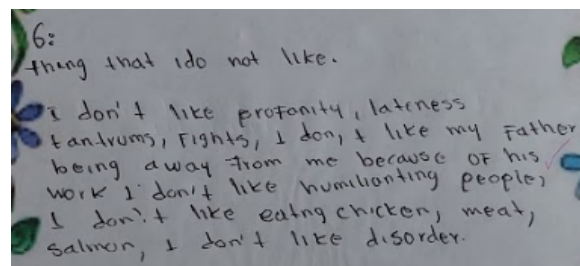 6:
thing that ido not like.
I don't like profanity, lateness
tantrums, Fights, I don,t like my Father
being away from me because of his
work I don't like humilianting people,
I don't like eatng chicken, meat,
salmon, I don't like disorder.